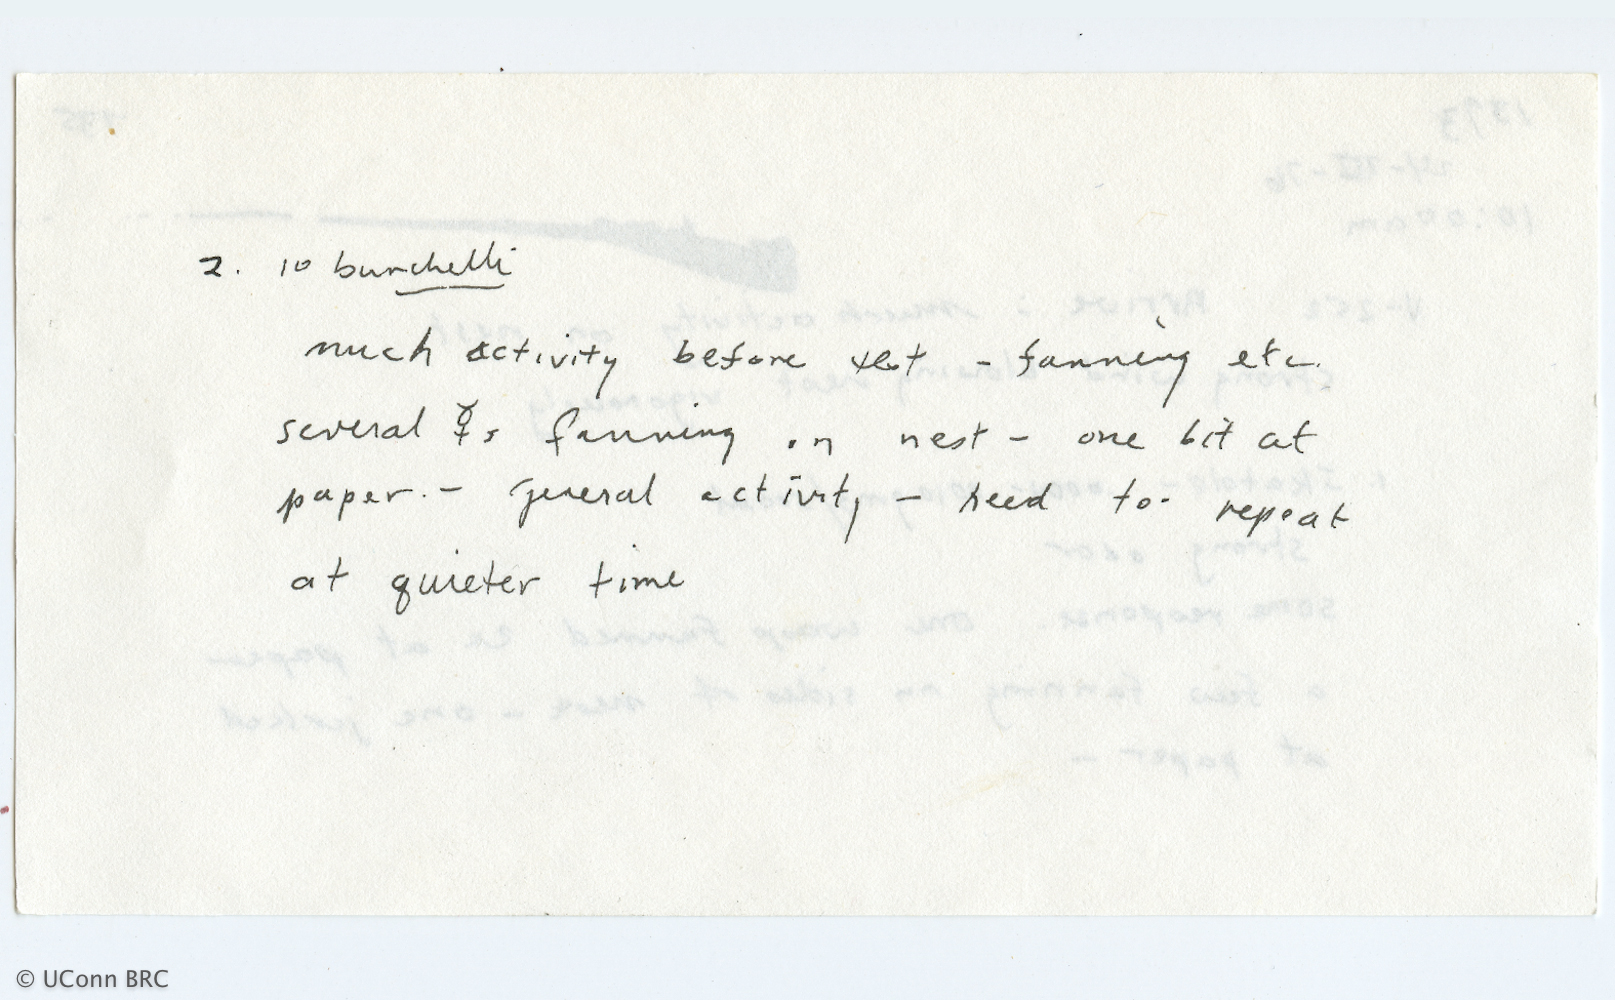 2. 10 burchelli
much activity before test - fanning etc.
several ☿s fanning on nest - one bit at
paper. - General activity - need to repeat
at quieter time
© UConn BRC